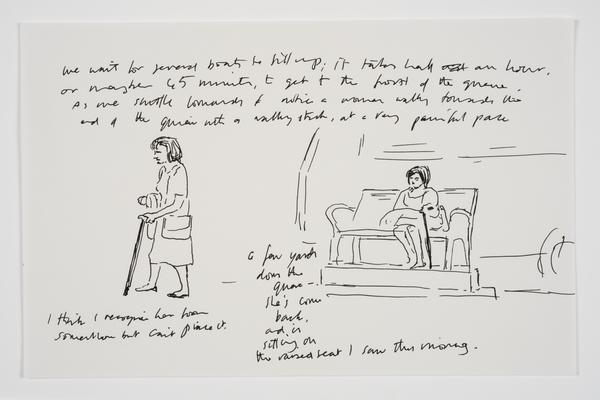 we wait for several boats to fill up; it takes half an hour,
or maybe 45 minutes, to get to the front of the queue.
As we shuffle forwards I notice a woman walking towards the
end of the queue with a walking stick, at a very painful pace
I think I recognise her from
somewhere but can't place it.
a few yards
down the
queue –
she's come
back,
and is
sitting on
the raised seat I saw this morning.